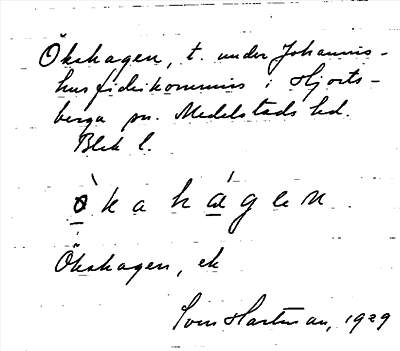 Ökshagen, t. under Johannis-
hus fideikommiss i Hjorts-
berga sn. Medelstads hd.
Blek l.
ò̲ k a h á̲ g e n
Ökshagen, ek
Sven Hartman, 1929